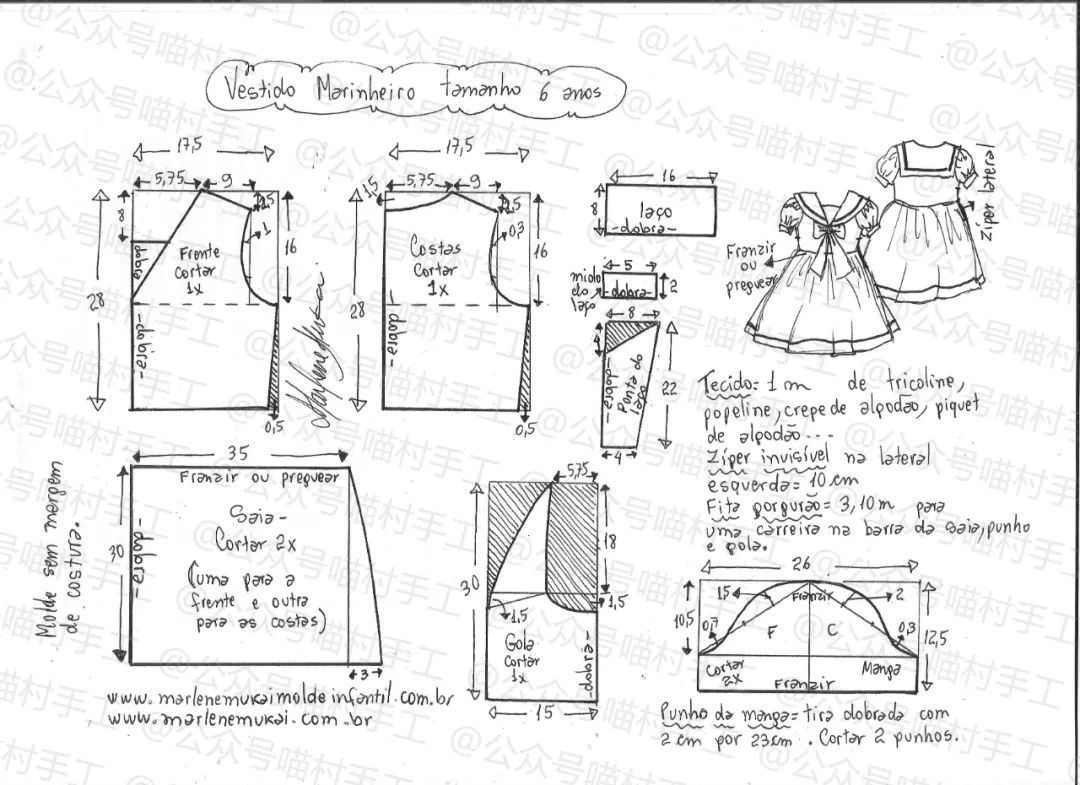 Vestido Marinheiro tamanho 6 anos
17,5
5,75
9
8
1,5
1
16
28
dobra
Frente
cortar
1x
-dobra-
0,5
17,5
1,5
5,75
9
1,5
0,3
16
28
Costas
Cortar
1x
-dobra-
0,5
16
8
laço
-dobra-
5
miolo
do
laço
-dobra-
2
8
4
-dobra-
Ponta do
laço
22
4
Franzir
ou
preguear
Zíper lateral
Tecido= 1m de tricoline,
popeline, crepe de algodão, piquet
de algodão...
Zíper invisível na lateral
esquerda= 10cm
Fita gorgurão= 3,10m para
uma carreira na barra da saia, punho
e gola.
35
Franzir ou preguear
30
-dobra-
Saia-
Cortar 2x
(uma para a
frente e outra
para as costas)
3
Molde sem margem
de costura.
5,75
18
30
1,5
1,5
Gola
Cortar
1x
-dobra-
15
26
15
Franzir
2
10,5
0,7
F
C
0,3
12,5
Cortar
2x
Manga
Franzir
Punho da manga= tira dobrada com
2cm por 23cm. Cortar 2 punhos.
www.marlenemukaimoldeinfantil.com.br
www.marlenemukai.com.br
@公众号喵村手工